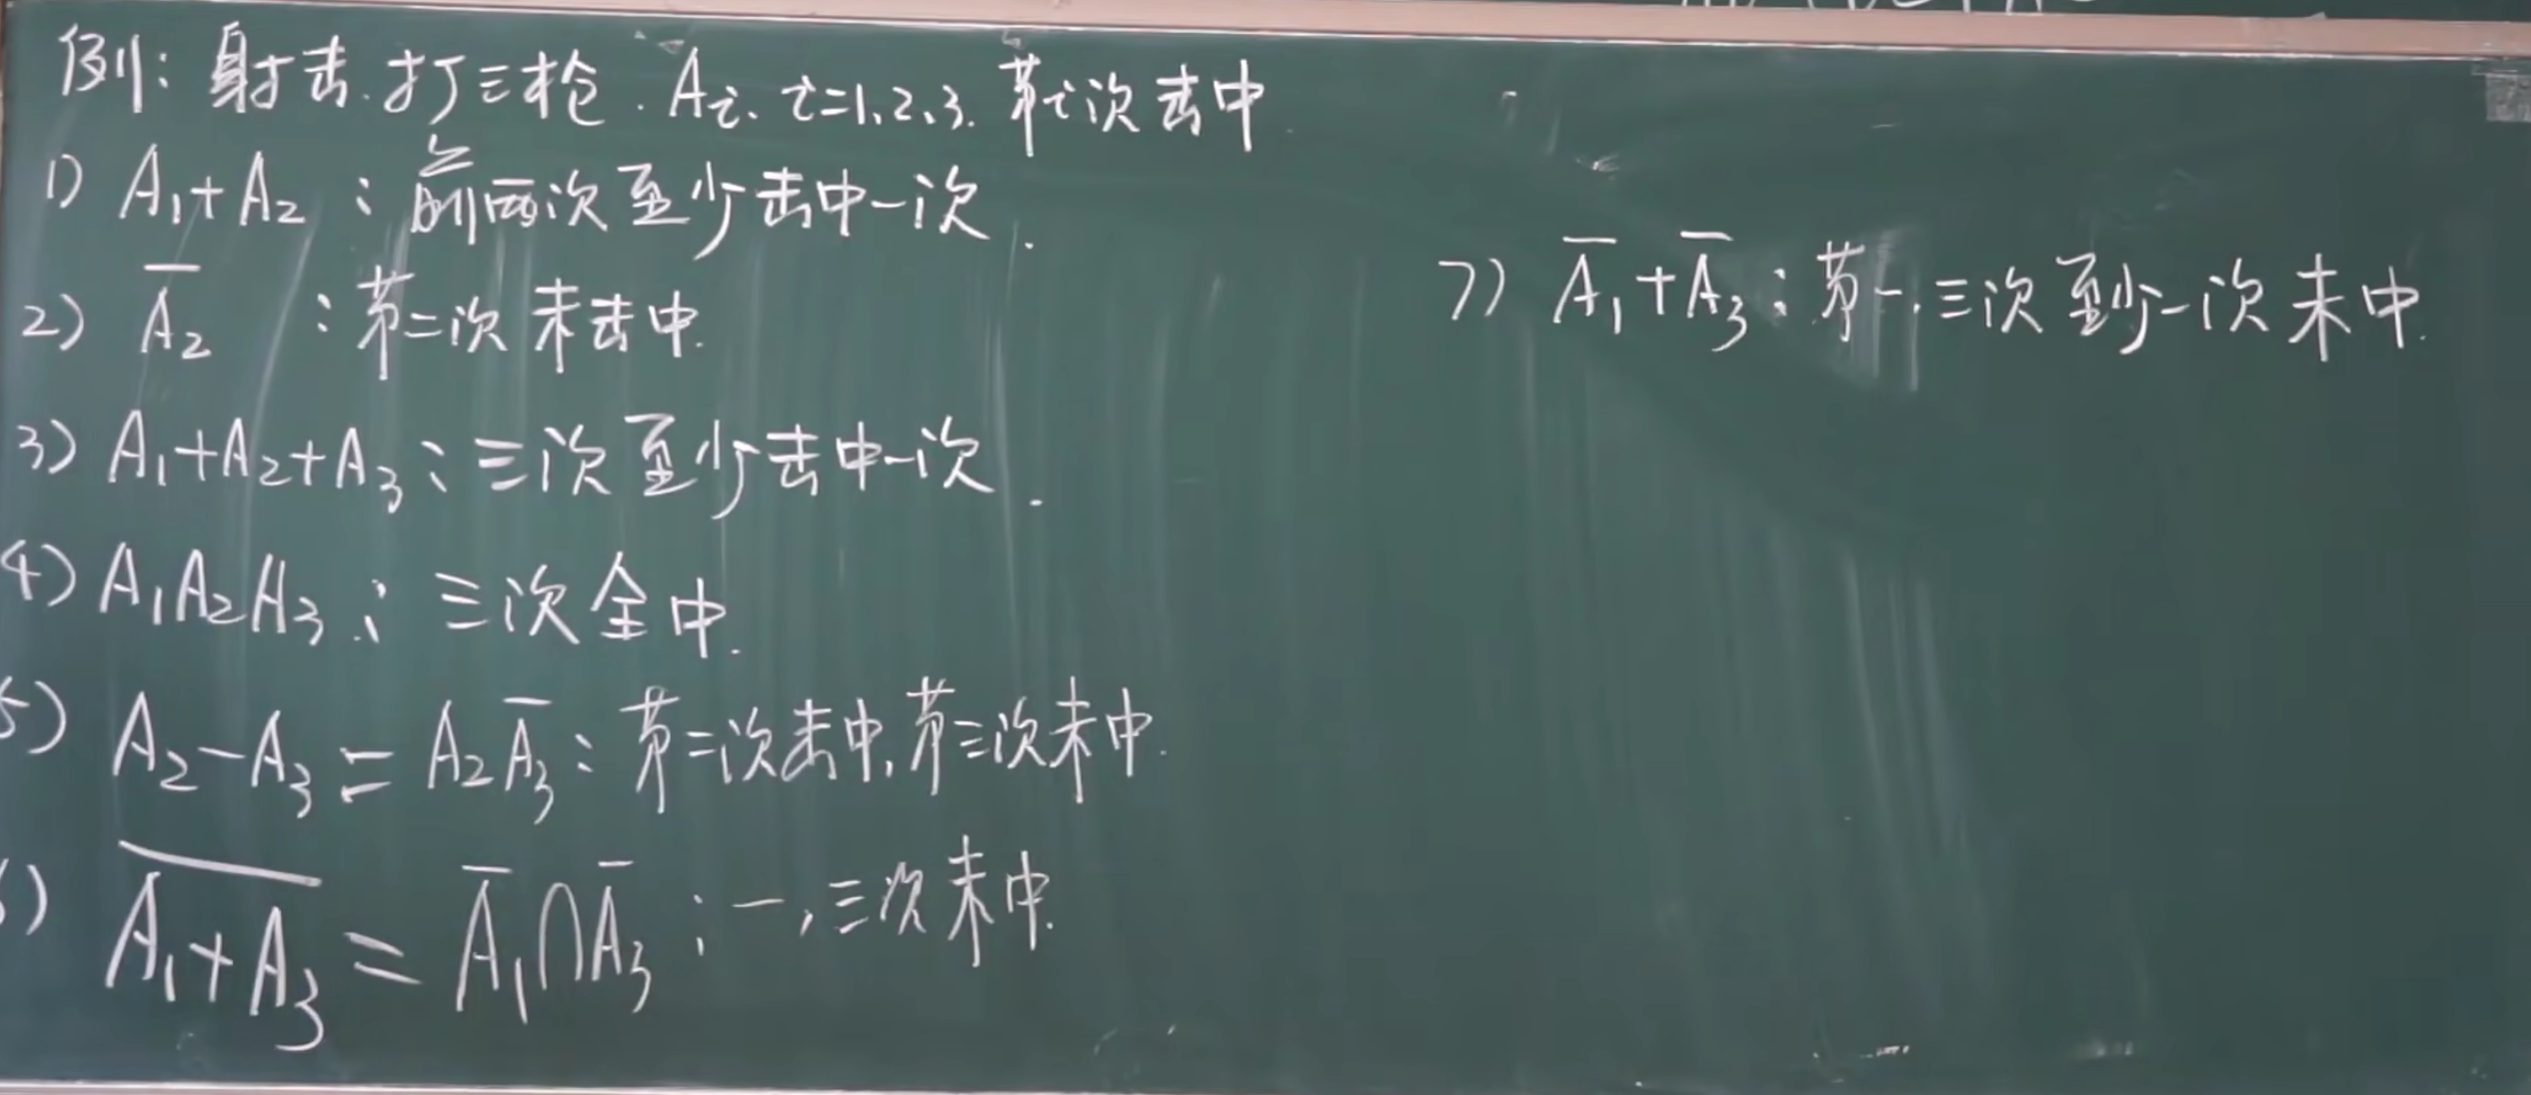 例：射击.打三枪.Aᵢ、i=1、2、3.第i次击中
1) A₁+A₂：前两次至少击中一次.
2) A̅₂：第二次未击中.
3) A₁+A₂+A₃：三次至少击中一次.
4) A₁A₂A₃：三次全中.
5) A₂-A₃=A₂A̅₃：第二次击中,第三次未中.
) \overline{A₁+A₃}=A̅₁∩A̅₃：一,三次未中.
7) A̅₁+A̅₃：第一,三次至少一次未中.